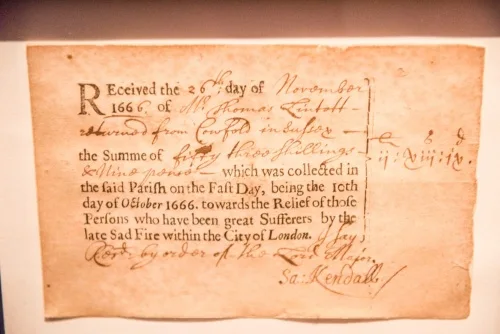 REceived the 26th: day of November
1666. of Mr. Thomas Lintott
returned from Cowfold in Sussex
the Summe of fifty three shillings
& Nine pence which was collected in
the said Parish on the Fast Day, being the 10th
day of October 1666. towards the Relief of those
Persons who have been great Sufferers by the
late Sad Fire within the City of London. I say,
Recd: by order of the Lord Major.
Sa: Kendall
£ s d
ij : xiij : ix.